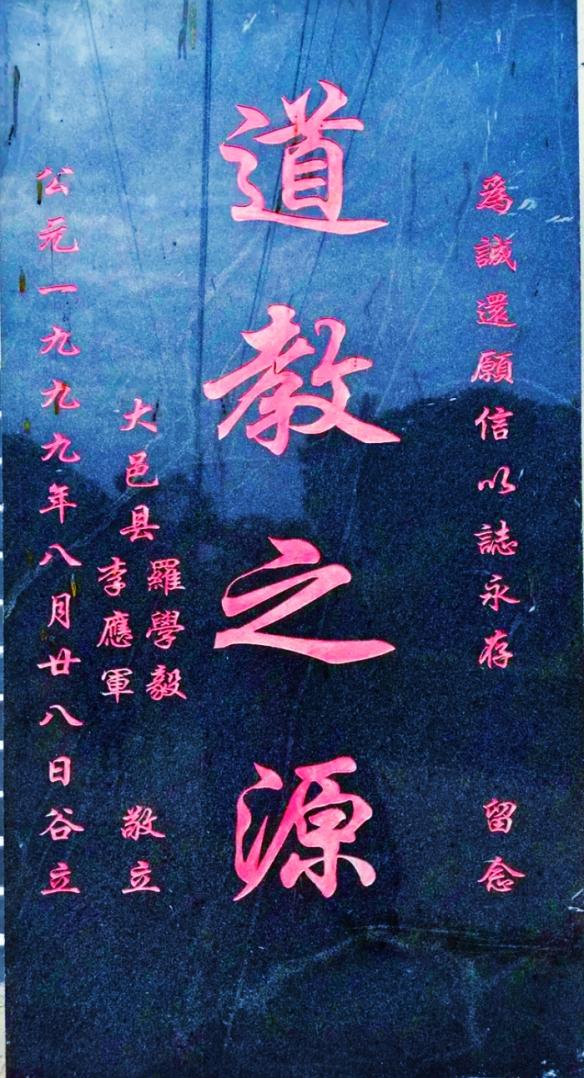 爲誠還願信以誌永存 留念
道教之源
大邑县 羅學毅 李應軍 敬立
公元一九九九年八月廿八日谷立